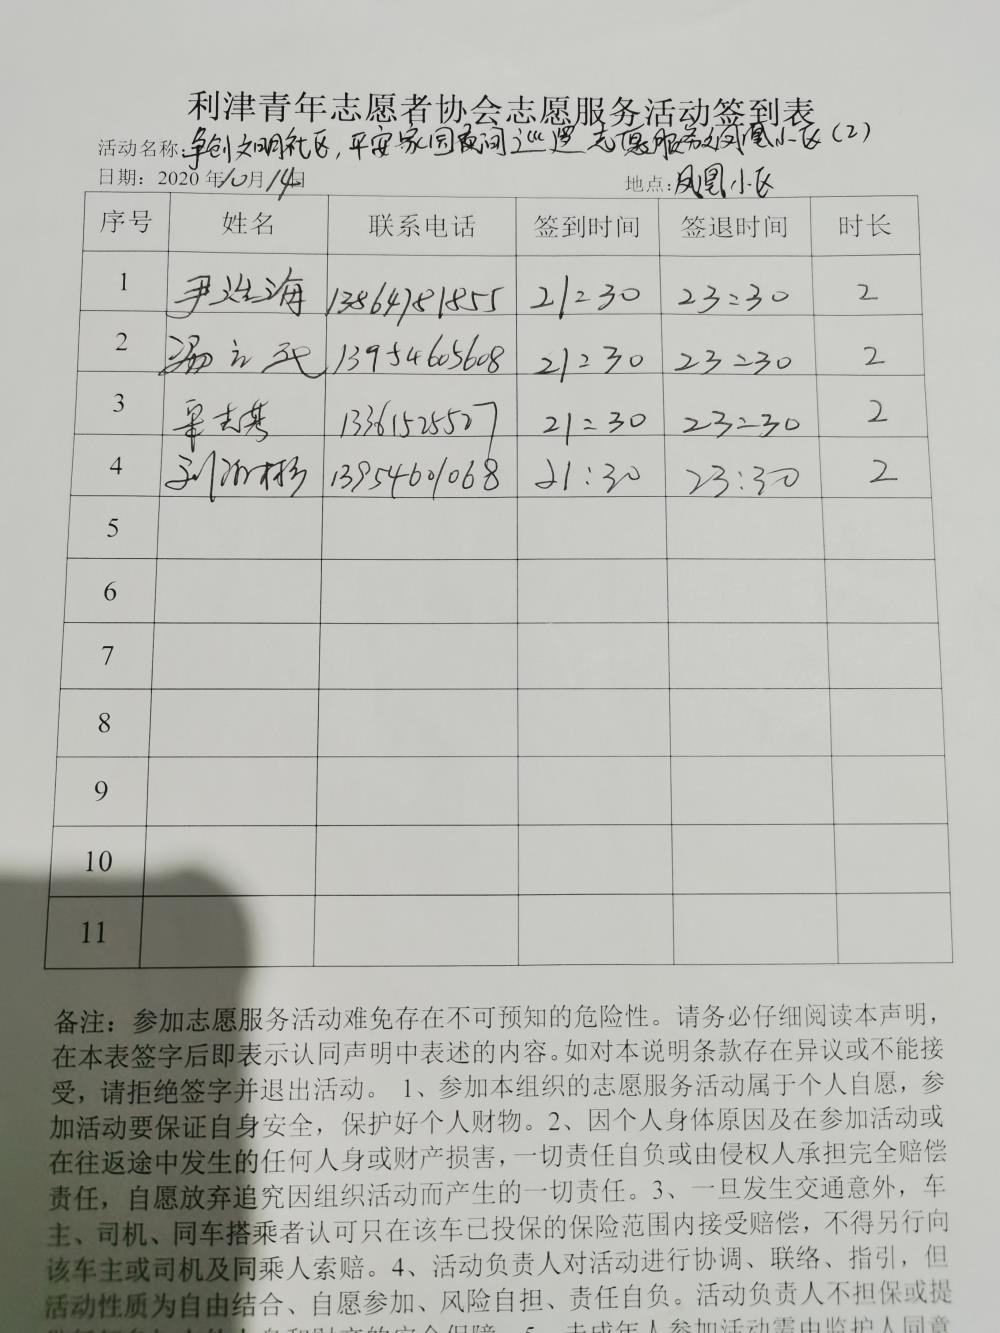 利津青年志愿者协会志愿服务活动签到表
活动名称:争创文明社区,平安家园夜间巡逻志愿服务及凤凰小区(2)
日期: 2020年10月14日 地点:凤凰小区
序号 姓名 联系电话 签到时间 签退时间 时长
1 尹 海 13864781855 21:30 23:30 2
2 冯立 13954605608 21:30 23:30 2
3 志 13361525527 21:30 23:30 2
4 刘 彬 13954601068 21:30 23:30 2
5
6
7
8
9
10
11
备注:参加志愿服务活动难免存在不可预知的危险性。请务必仔细阅读本声明,
在本表签字后即表示认同声明中表述的内容。如对本说明条款存在异议或不能接
受,请拒绝签字并退出活动。 1、参加本组织的志愿服务活动属于个人自愿,参
加活动要保证自身安全,保护好个人财物。2、因个人身体原因及在参加活动或
在往返途中发生的任何人身或财产损害,一切责任自负或由侵权人承担完全赔偿
责任,自愿放弃追究因组织活动而产生的一切责任。3、一旦发生交通意外,车
主、司机、同车搭乘者认可只在该车已投保的保险范围内接受赔偿,不得另行向
该车主或司机及同乘人索赔。4、活动负责人对活动进行协调、联络、指引,但
活动性质为自由结合、自愿参加、风险自担、责任自负。活动负责人不担保或提
5、未成年人参加活动需由监护人同意